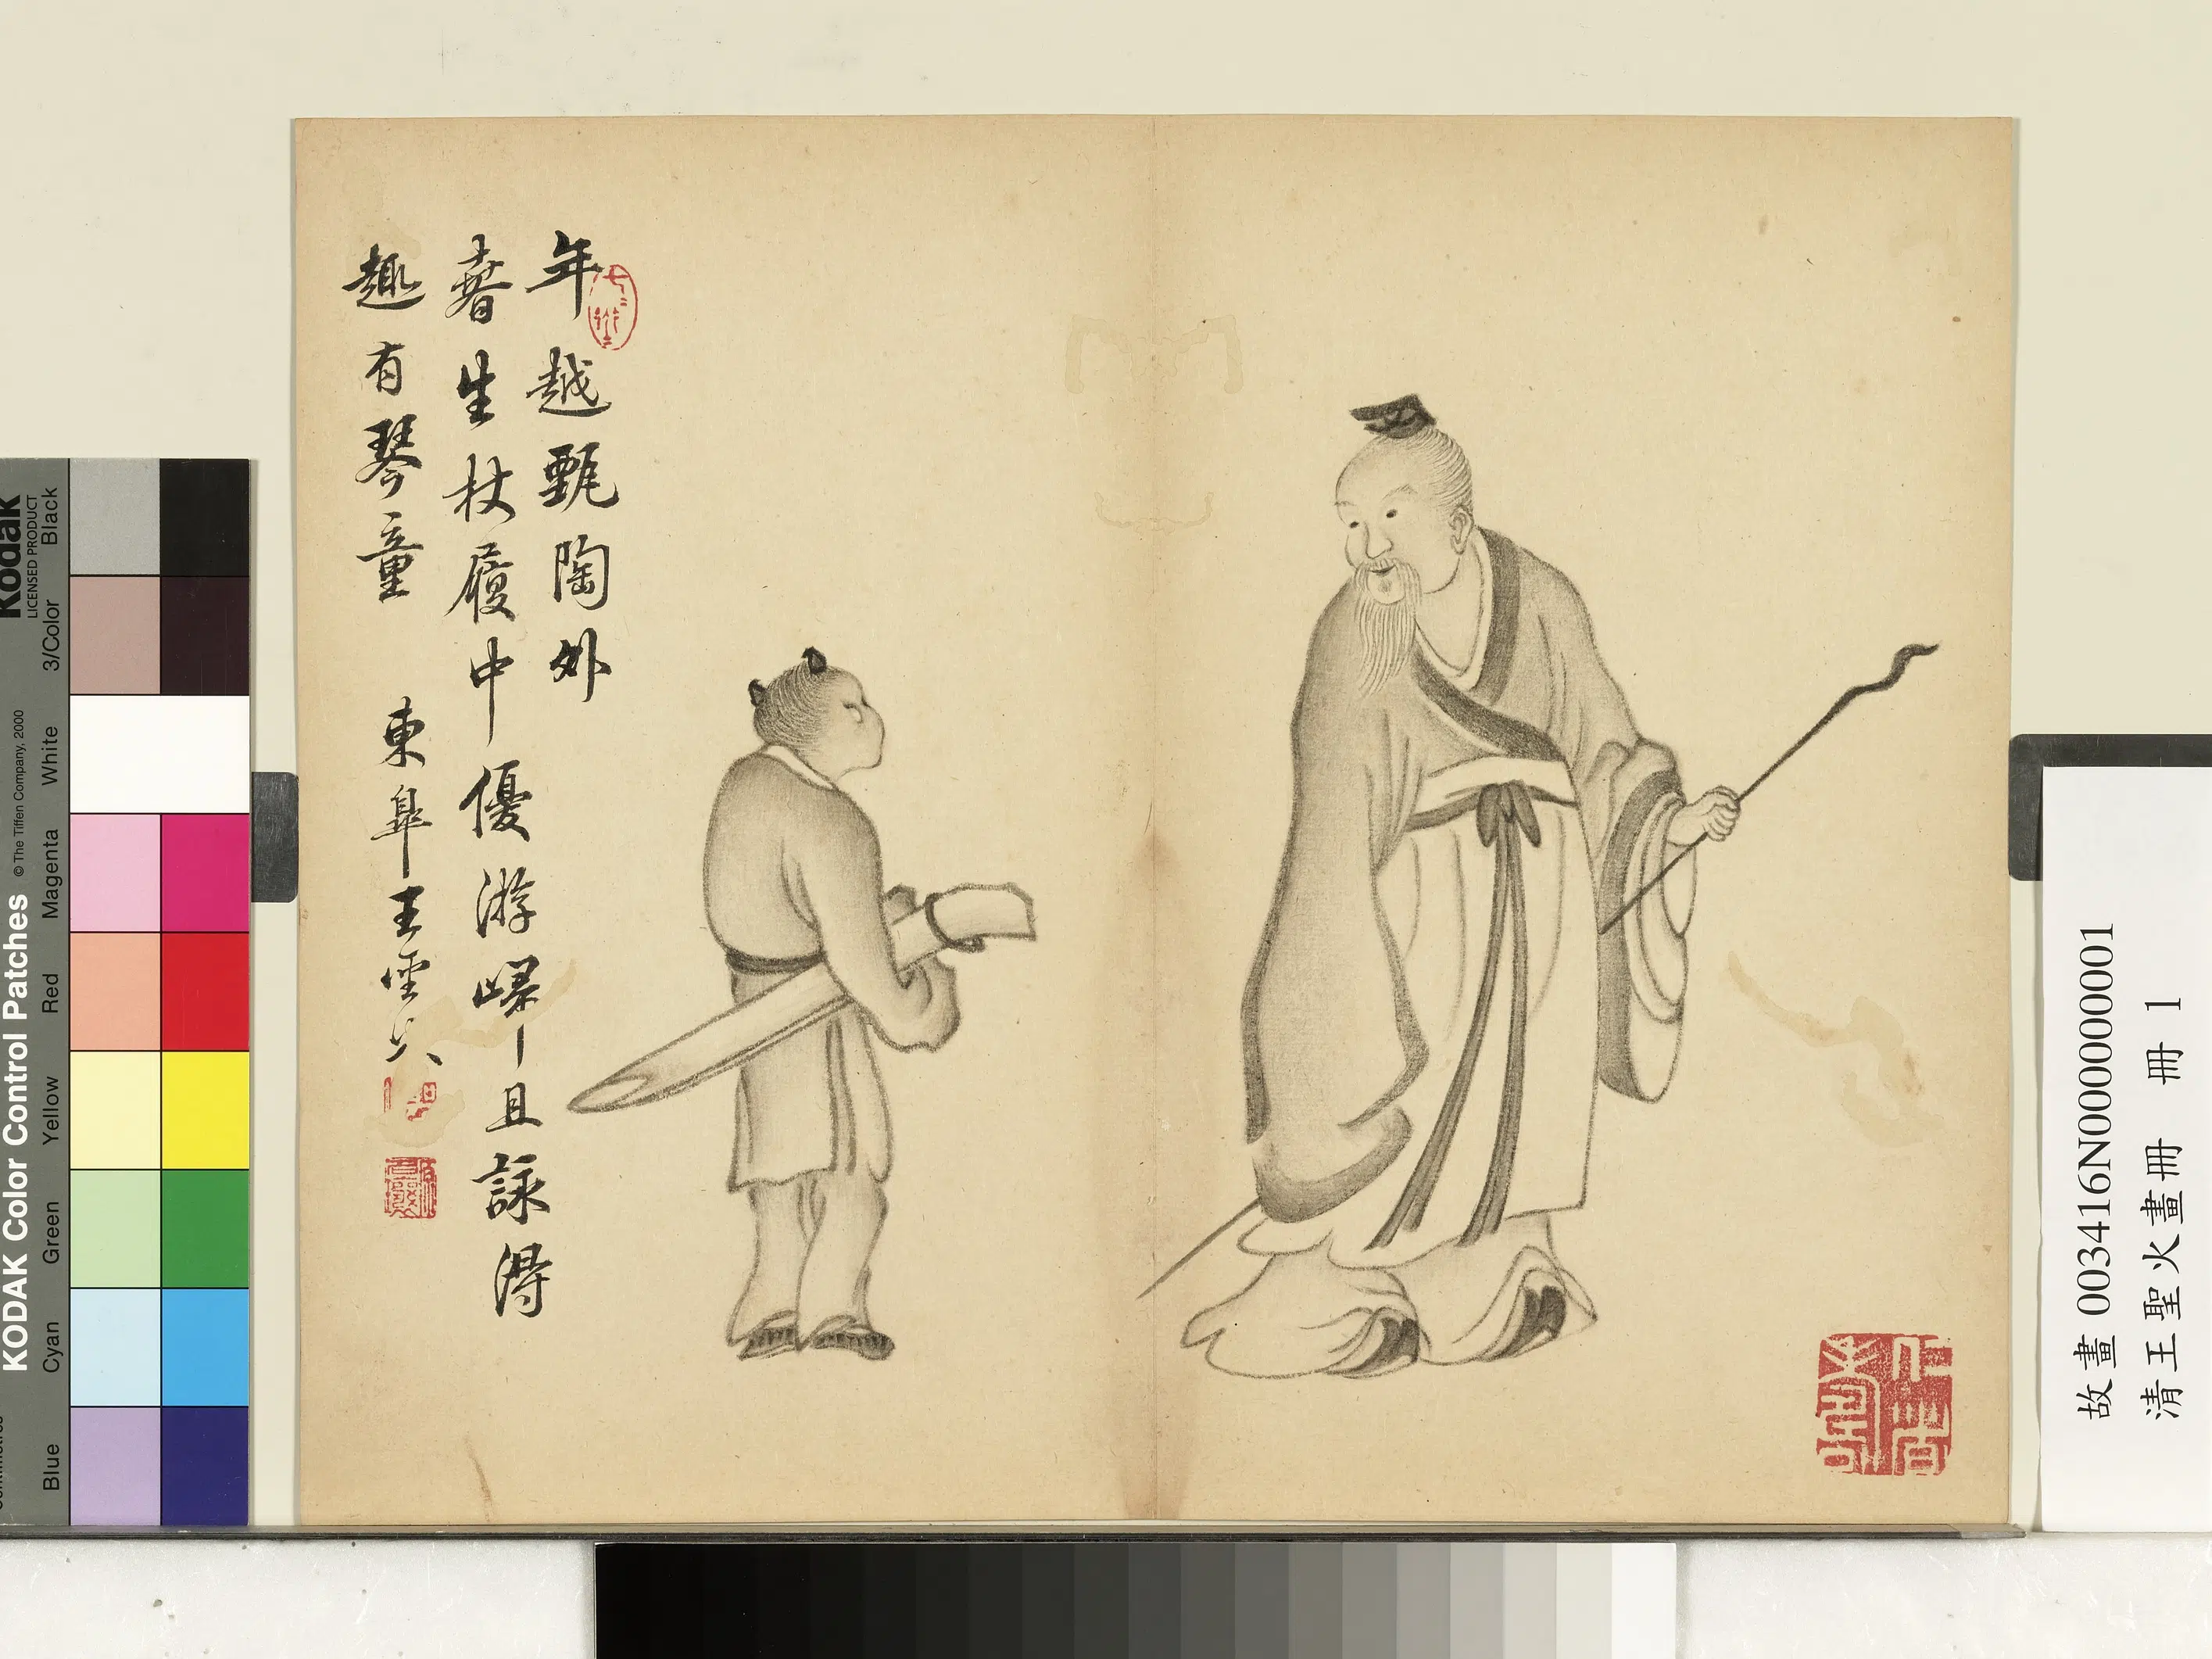 年越甄陶外
春生杖履中優游歸且詠得
趣有琴童
東皐王
故畫 003416N000000001
清王聖火畫冊 冊 1
Kodak
LICENSED PRODUCT
KODAK Color Control Patches
© The Tiffen Company, 2000
Black
3/Color
White
Magenta
Red
Yellow
Green
Cyan
Blue